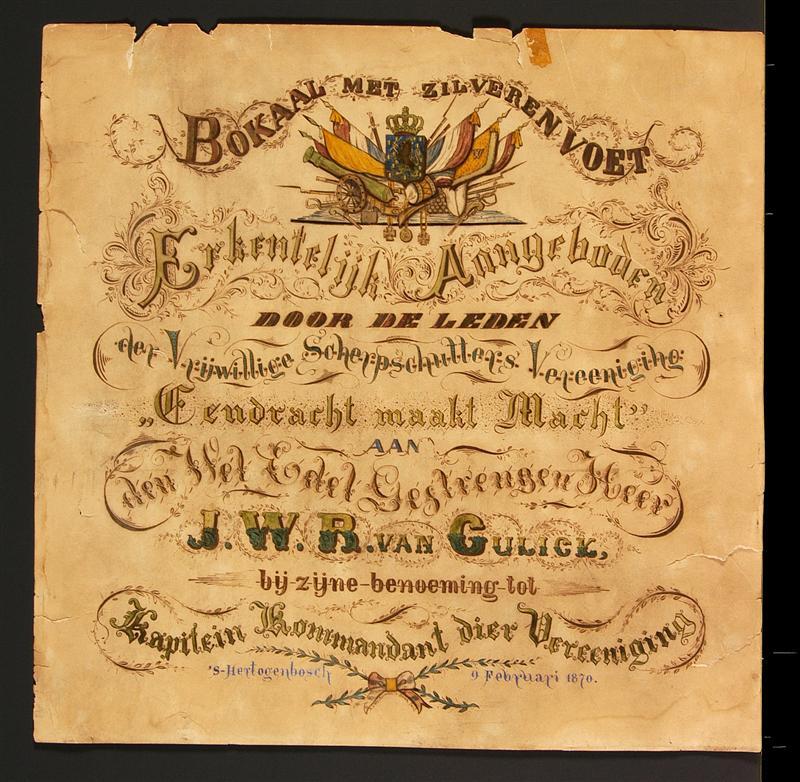 BOKAAL MET ZILVEREN VOET
Erkentelijk Aangeboden
DOOR DE LEDEN
der Vrijwillige Scherpschutters Vereeniging
„Eendracht maakt Macht”
AAN
den Wel Edel Gestrengen Heer
J. W. R. VAN GULICK,
bij zijne benoeming tot
Kapitein Kommandant dier Vereeniging
'S-Hertogenbosch 9 Februari 1870.